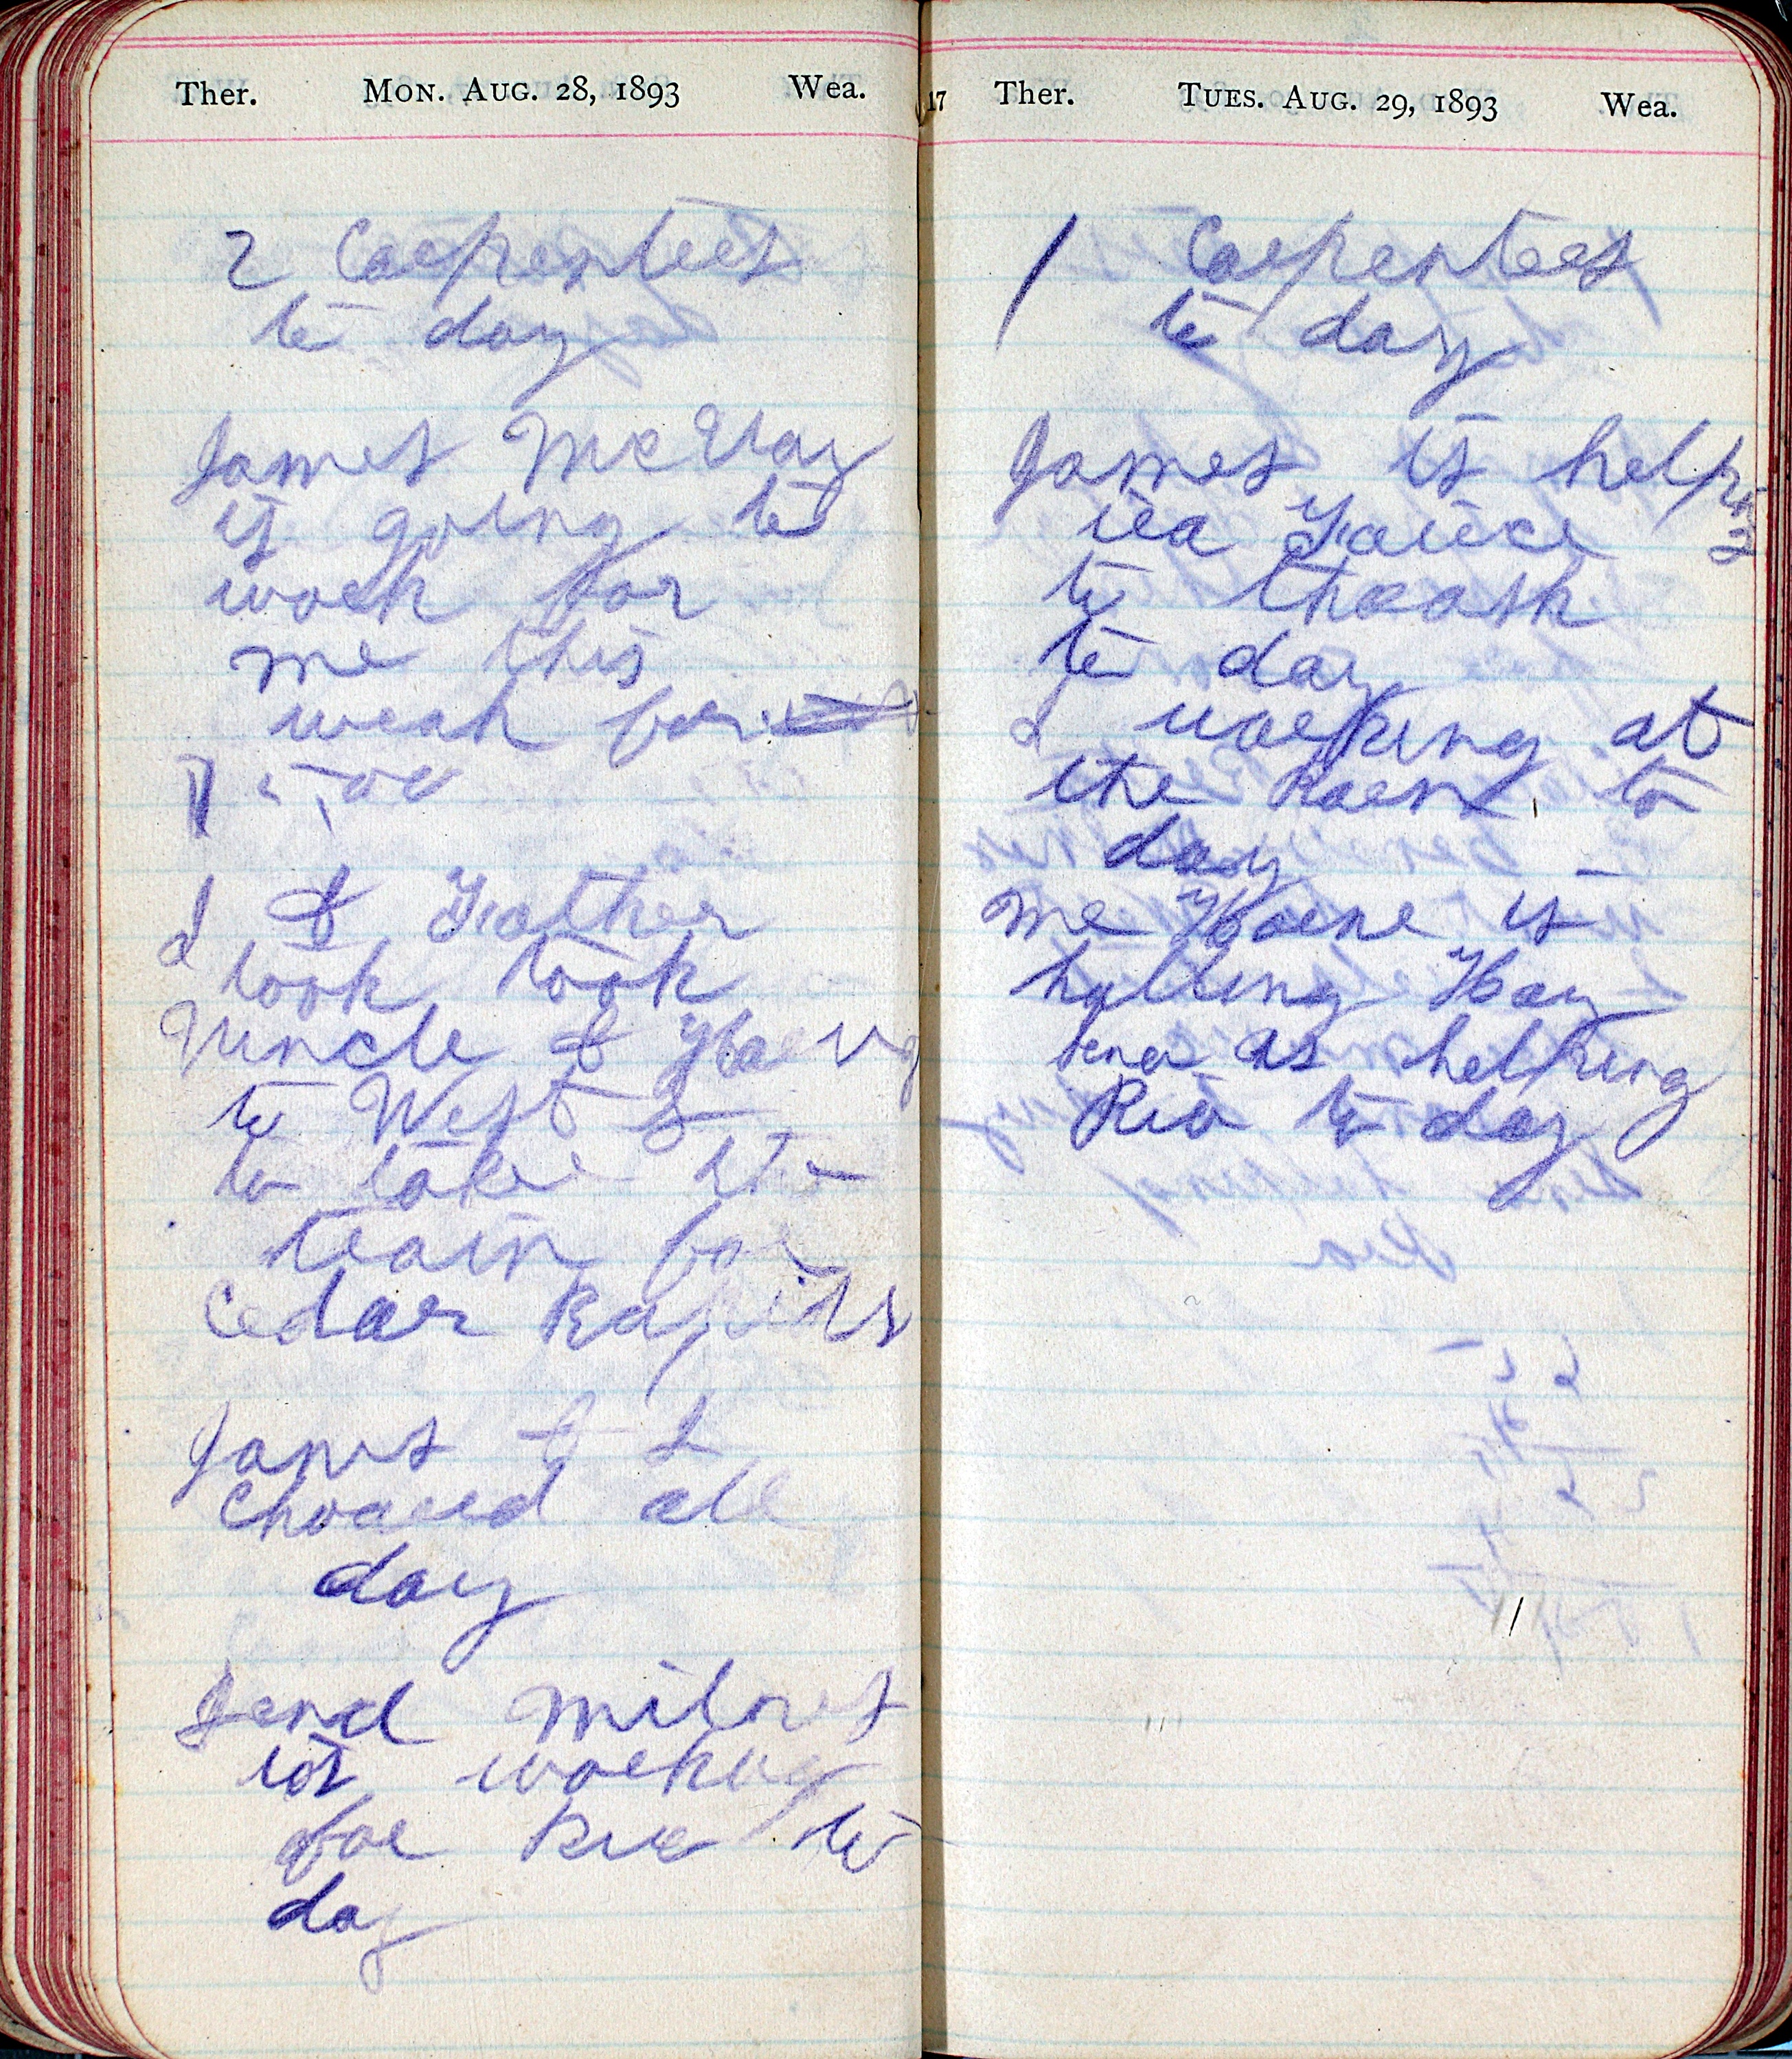 Ther. MON. AUG. 28, 1893 Wea.
2 Carpenters
to day
James McVay
is going to
work for
me this
weak for
I & Father
took took
Uncle & Harvy
to West
to take the
train for
Cedar Rapids
James & I
Choared all
day
Send Milnes
is working
for Rio to
day
17 Ther. TUES. AUG. 29, 1893 Wea.
1 Carpenters
to day
James is helping
ira
to thrash
to day
I working at
the Barn to
day
Mr Horne is
halling Hay
helping
Rio to day